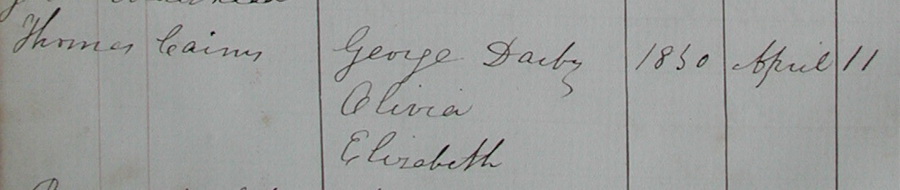 Thomas Cairns George Darby 1850 April 11
Olivia
Elizabeth